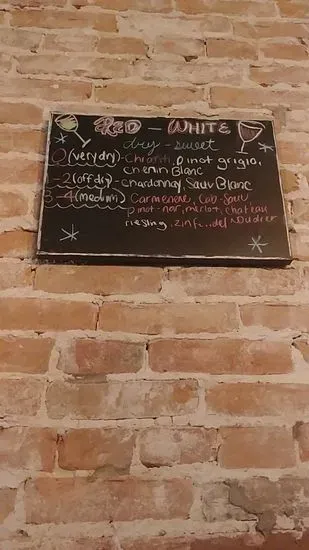 RED - WHITE
dry - sweet
0 (very dry) - Chianti, pinot grigio,
chenin Blanc
-2 (off dry) - chardonnay, Sauv Blanc
3-4 (medium) Carmenere, Cab-Sauv
pinot-noir, merlot, chateau
riesling, zinf...del